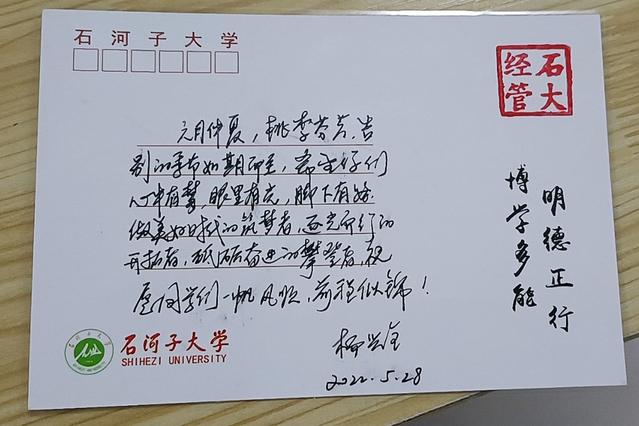 石河子大学
石大
经管
六月仲夏，桃李芬芳，告
别的季节如期而至，希望你们
心中有梦，眼里有光，脚下有路
做美好时代的筑梦者，逐光而行的
开拓者，砥砺奋进的攀登者，祝
愿同学们一帆风顺，前程似锦！
明德正行
博学多能
石河子大学
SHIHEZI UNIVERSITY
2022.5.28